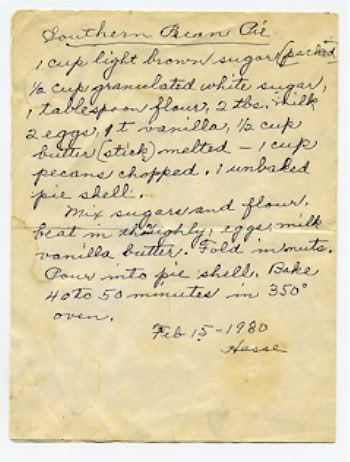 Southern Pecan Pie
1 cup light brown sugar (packed)
½ cup granulated white sugar,
1 tablespoon flour, 2 tbs. milk
2 eggs, 1 t vanilla, ½ cup
butter (stick) melted - 1 cup
pecans chopped. 1 unbaked
pie shell.
Mix sugars and flour.
beat in thoroughly, eggs, milk
vanilla butter. Fold in nuts.
Pour into pie shell. Bake
40 to 50 minutes in 350°
oven.
Feb 15-1980
Hesse